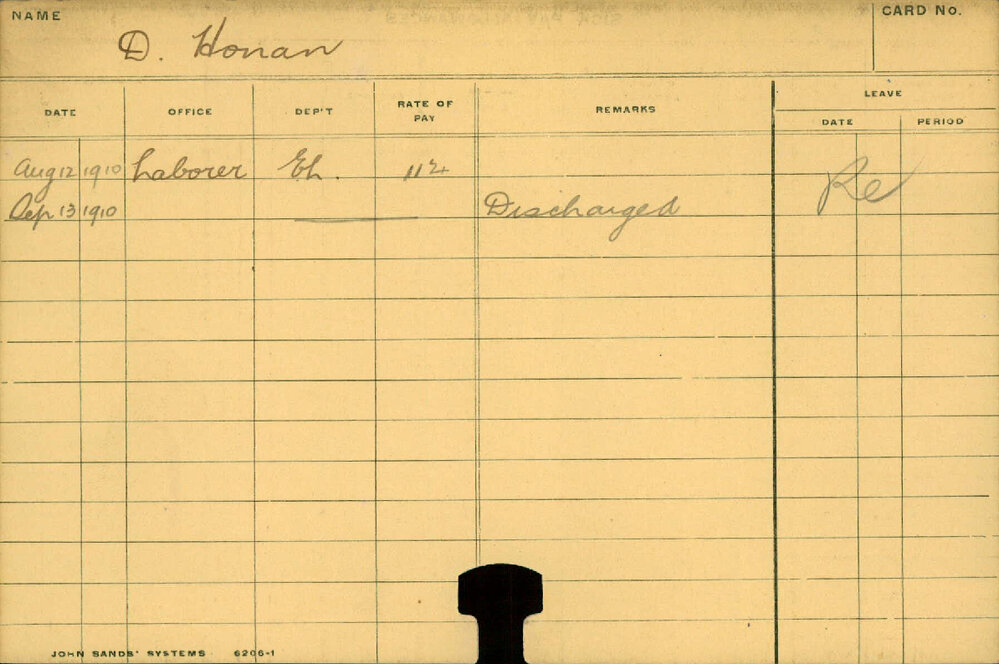 NAME
D. Honan
CARD No.
DATE OFFICE DEP'T RATE OF PAY REMARKS LEAVE
DATE PERIOD
Aug 12 1910 Laborer Eh. Re
Sep 13 1910 Discharged
JOHN SANDS' SYSTEMS 6206-1